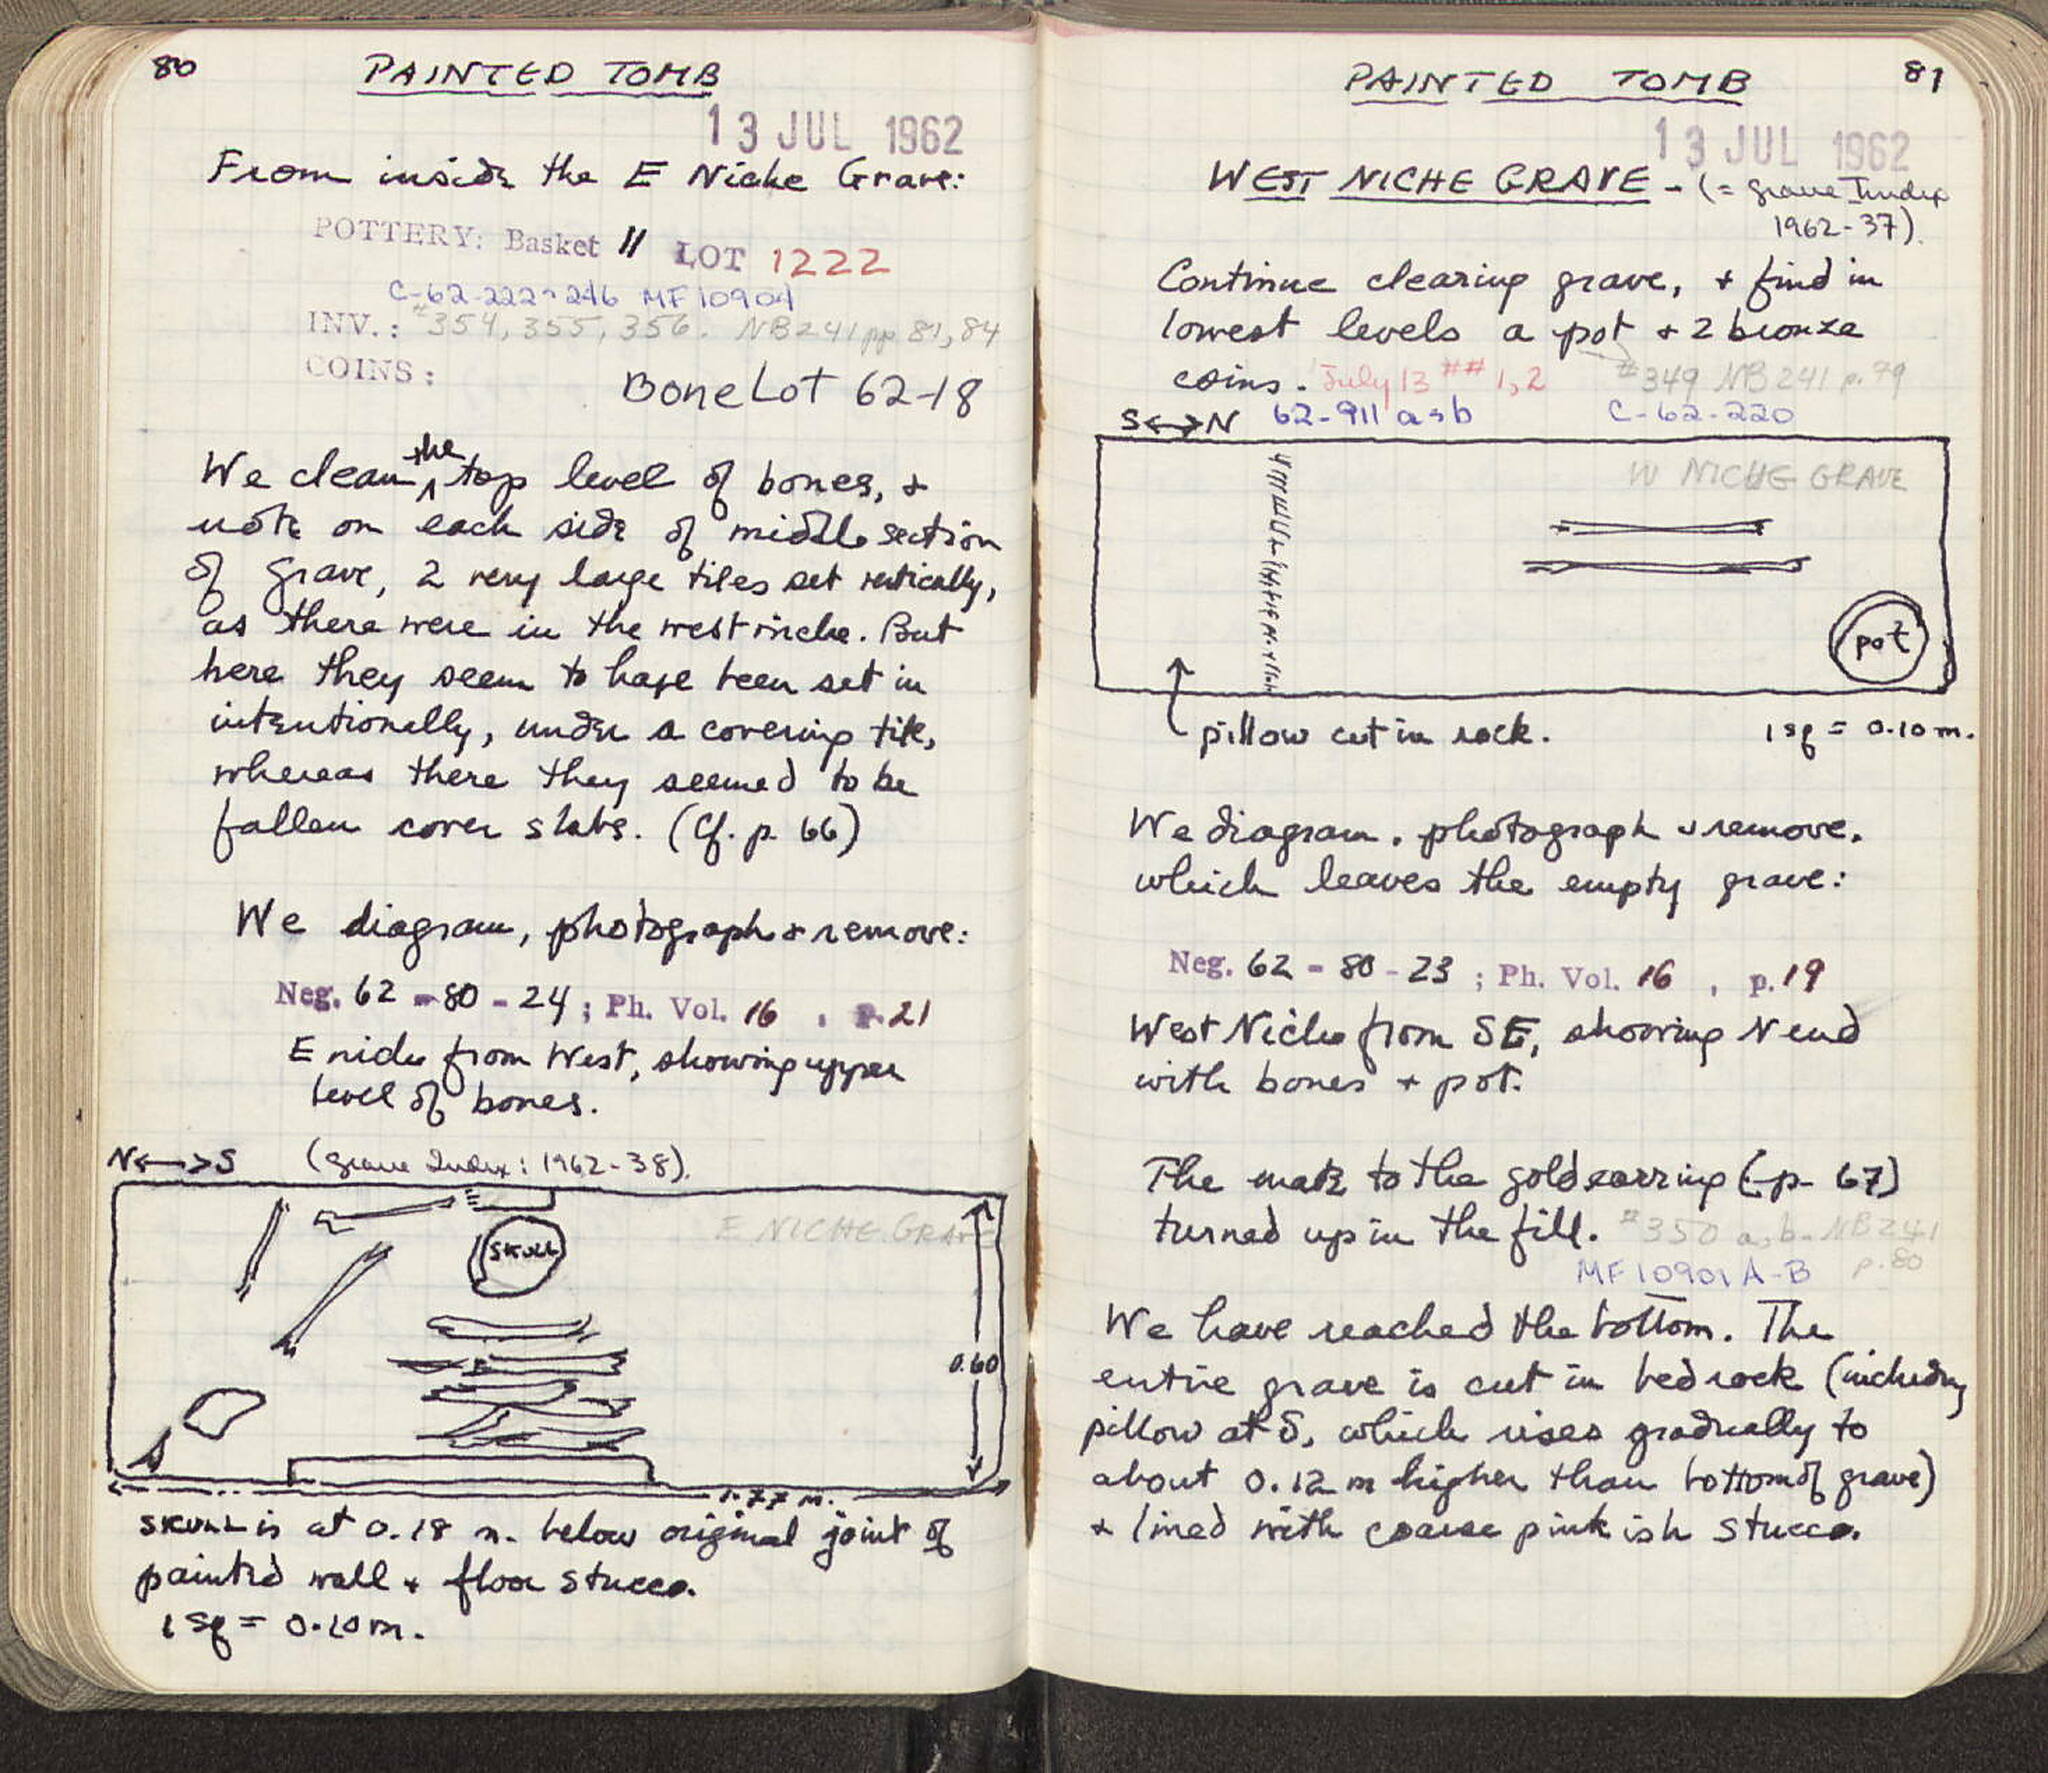 80
PAINTED TOMB
13 JUL 1962
From inside the E Niche Grave:
POTTERY: Basket 11 LOT 1222
C-62-222→246 MF 10904
INV.: #354, 355, 356. NB241 pp 81, 84
COINS:
Bone Lot 62-18
We clean the top level of bones, +
note on each side of middle section
of grave, 2 very large tiles set vertically,
as there were in the west niche. But
here they seem to have been set in
intentionally, under a covering tile,
whereas there they seemed to be
fallen cover slabs. (Cf. p. 66)
We diagram, photograph + remove:
Neg. 62-80-24; Ph. Vol. 16, p. 21
E niche from West, showing upper
level of bones.
N↔S (Grave Index: 1962-38).
E NICHE GRAVE
SKULL
0.60
1.77 m.
SKULL is at 0.18 m. below original joint of
painted wall + floor stucco.
1 sq = 0.10 m.
81
PAINTED TOMB
13 JUL 1962
WEST NICHE GRAVE - (= grave Index
1962-37).
Continue clearing grave, + find in
lowest levels a pot + 2 bronze
coins. July 13 ## 1, 2 #349 NB241 p. 79
S↔N 62-911 a→b C-62-220
W NICHE GRAVE
pot
pillow cut in rock. 1 sq = 0.10 m.
We diagram, photograph + remove,
which leaves the empty grave:
Neg. 62-80-23; Ph. Vol. 16, p. 19
West Niche from SE, showing N end
with bones + pot.
The mate to the gold earring (-p- 67)
turned up in the fill. #350 a, b- NB241
MF 10901 A-B p. 80
We have reached the bottom. The
entire grave is cut in bedrock (including
pillow at S, which rises gradually to
about 0.12 m higher than bottom of grave)
+ lined with coarse pinkish stucco.